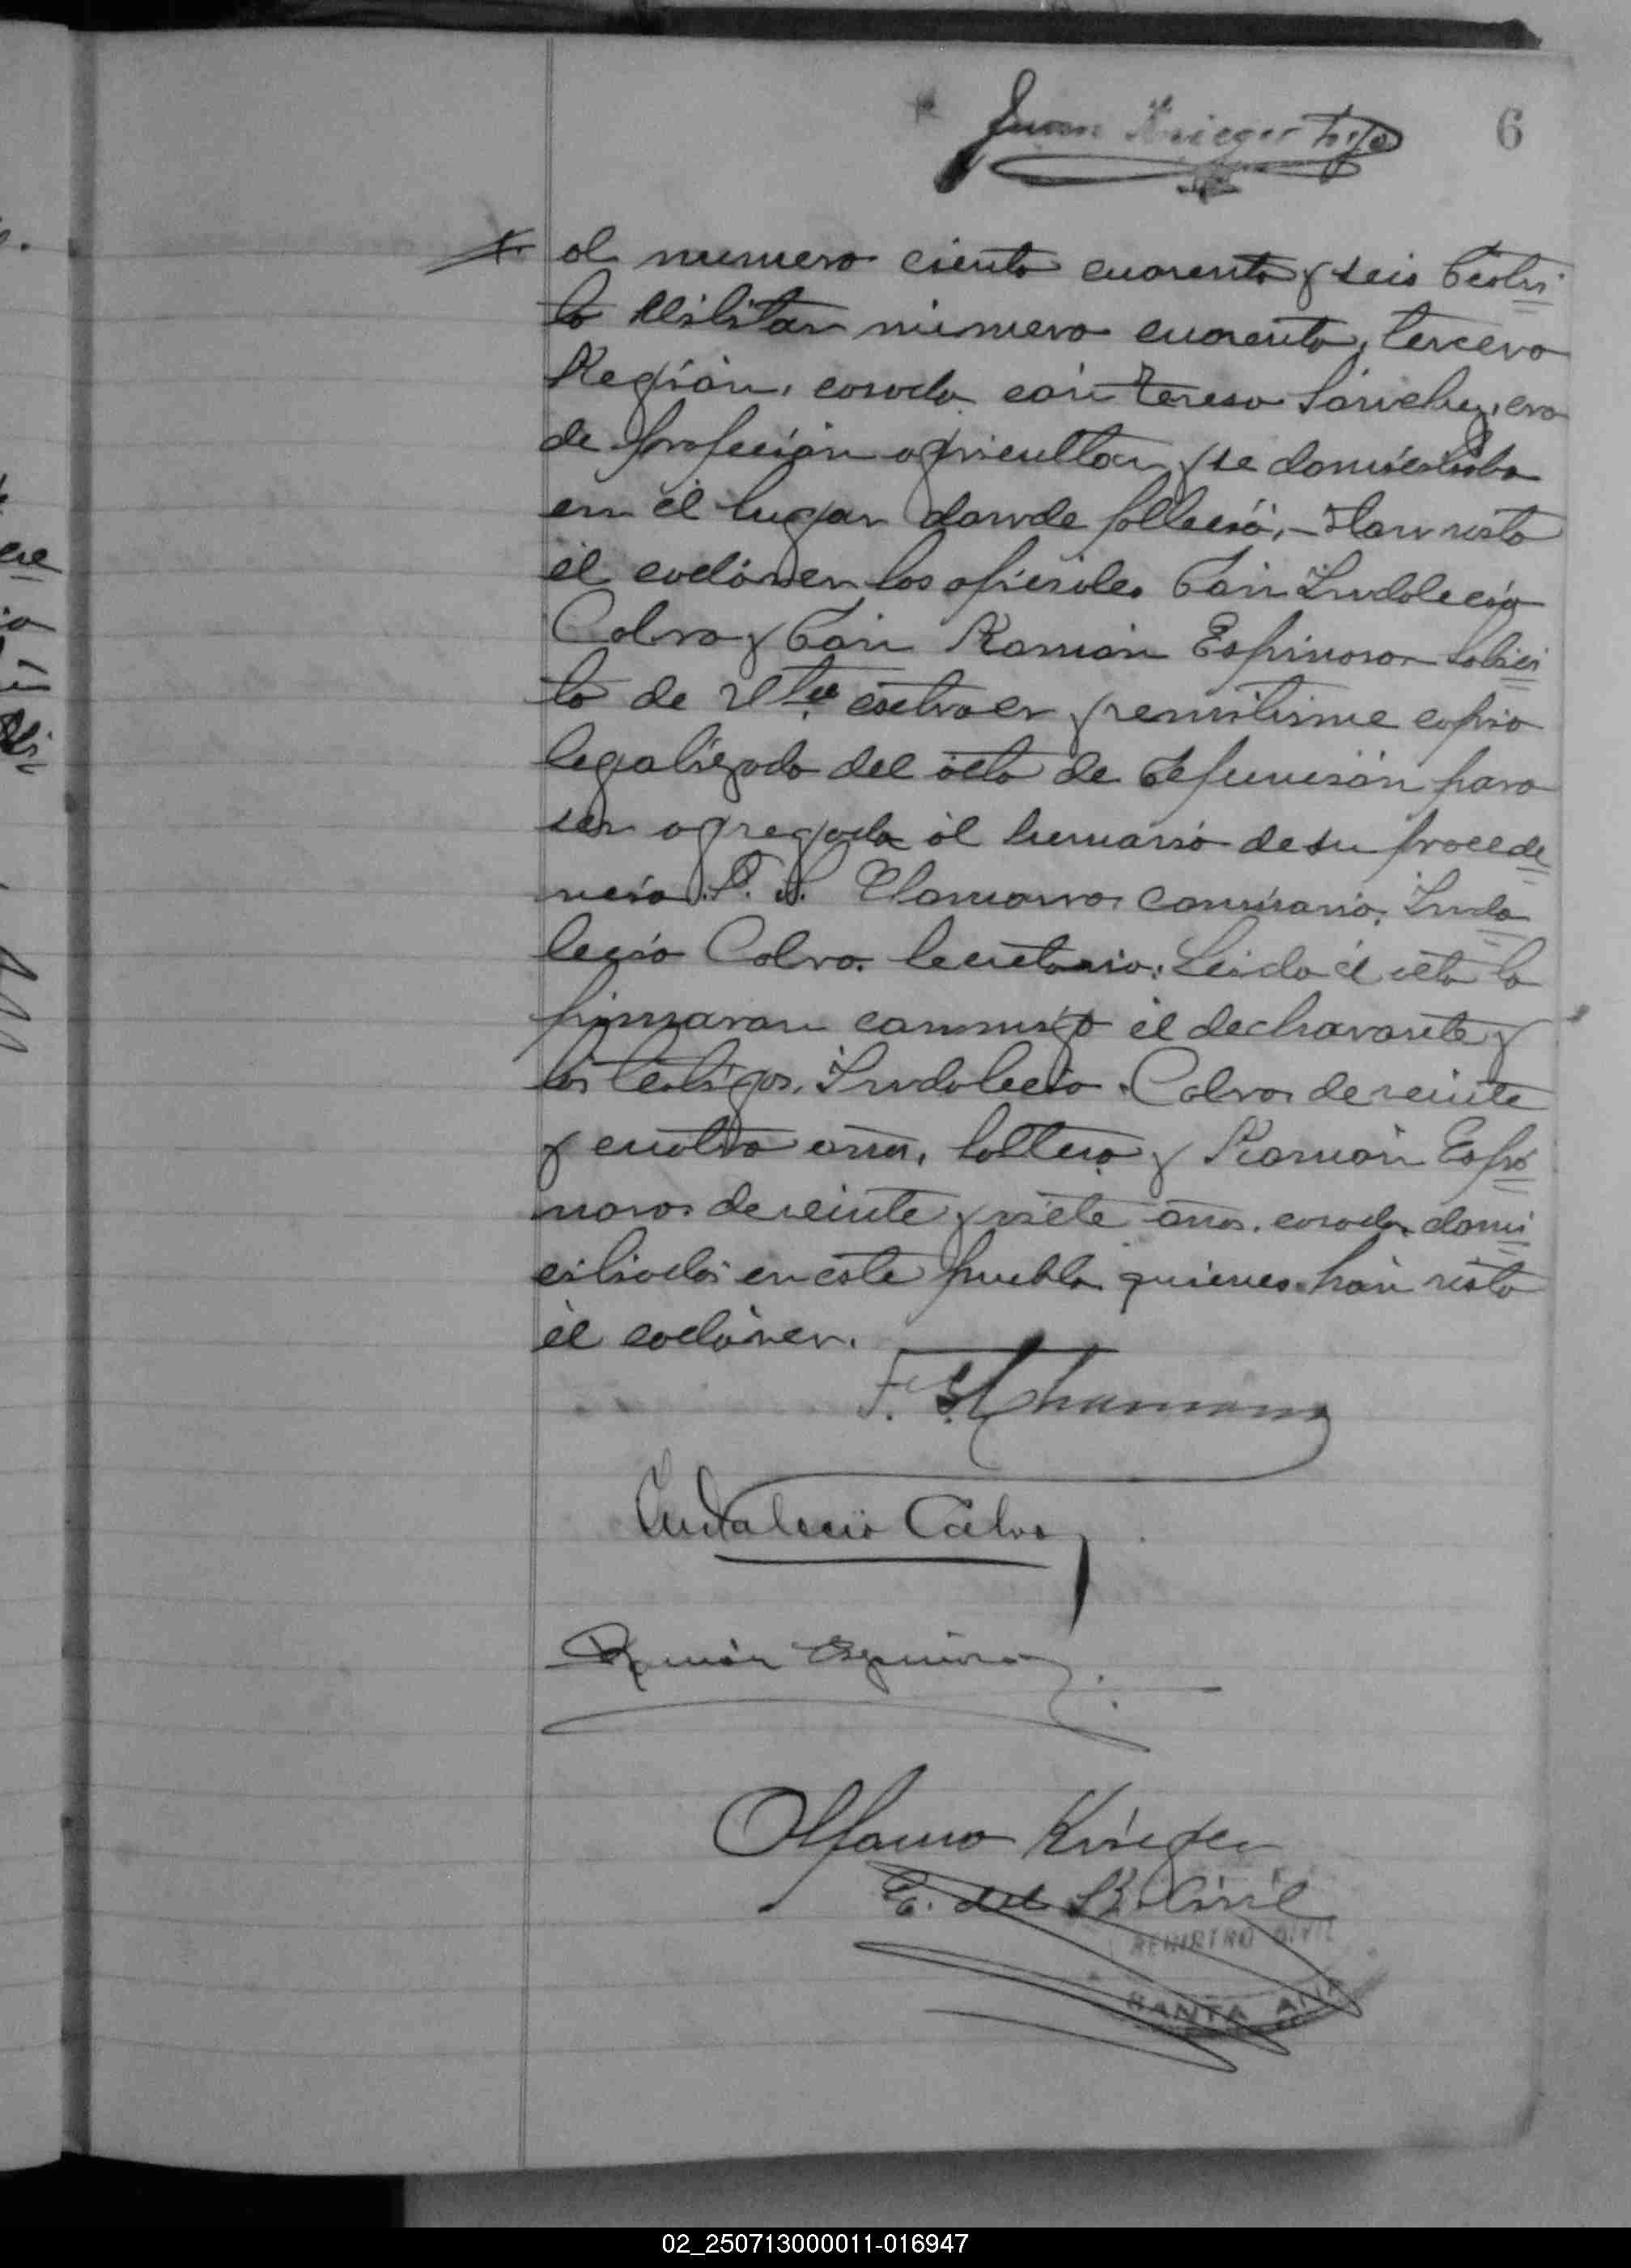 Juan Krieger hijo
6
al numero ciento cuarenta y seis Distri
to Militar número cuarenta, tercera
Región, casado con Teresa Sánchez, era
de profeción agricultor y se domiciliaba
en el lugar donde falleció,- Han visto
el cadáver los oficiales Don Indalecio
Calvo y Don Ramón Espinosa. Solici
to de Ud. extraer y remitirme copia
legalizada del acta de defunción para
ser agregada al sumario de su procede
ncia. F. S. Chamorro Comisario. Inda
lecio Calvo. Secretario. Leida el acta la
firmaron conmigo el declarante y
los testigos. Indalecio Calvo de veinte
y cuatro años, soltero y Ramón Espi
nosa de veinte y siete años, casado, domi
ciliados en este pueblo quienes han visto
el cadáver.
F. S. Chamorro
Indalecio Calvo
Ramón Espinosa
Krieger
E. del R. Civil
REGISTRO CIVIL
SANTA ANA
02_250713000011-016947